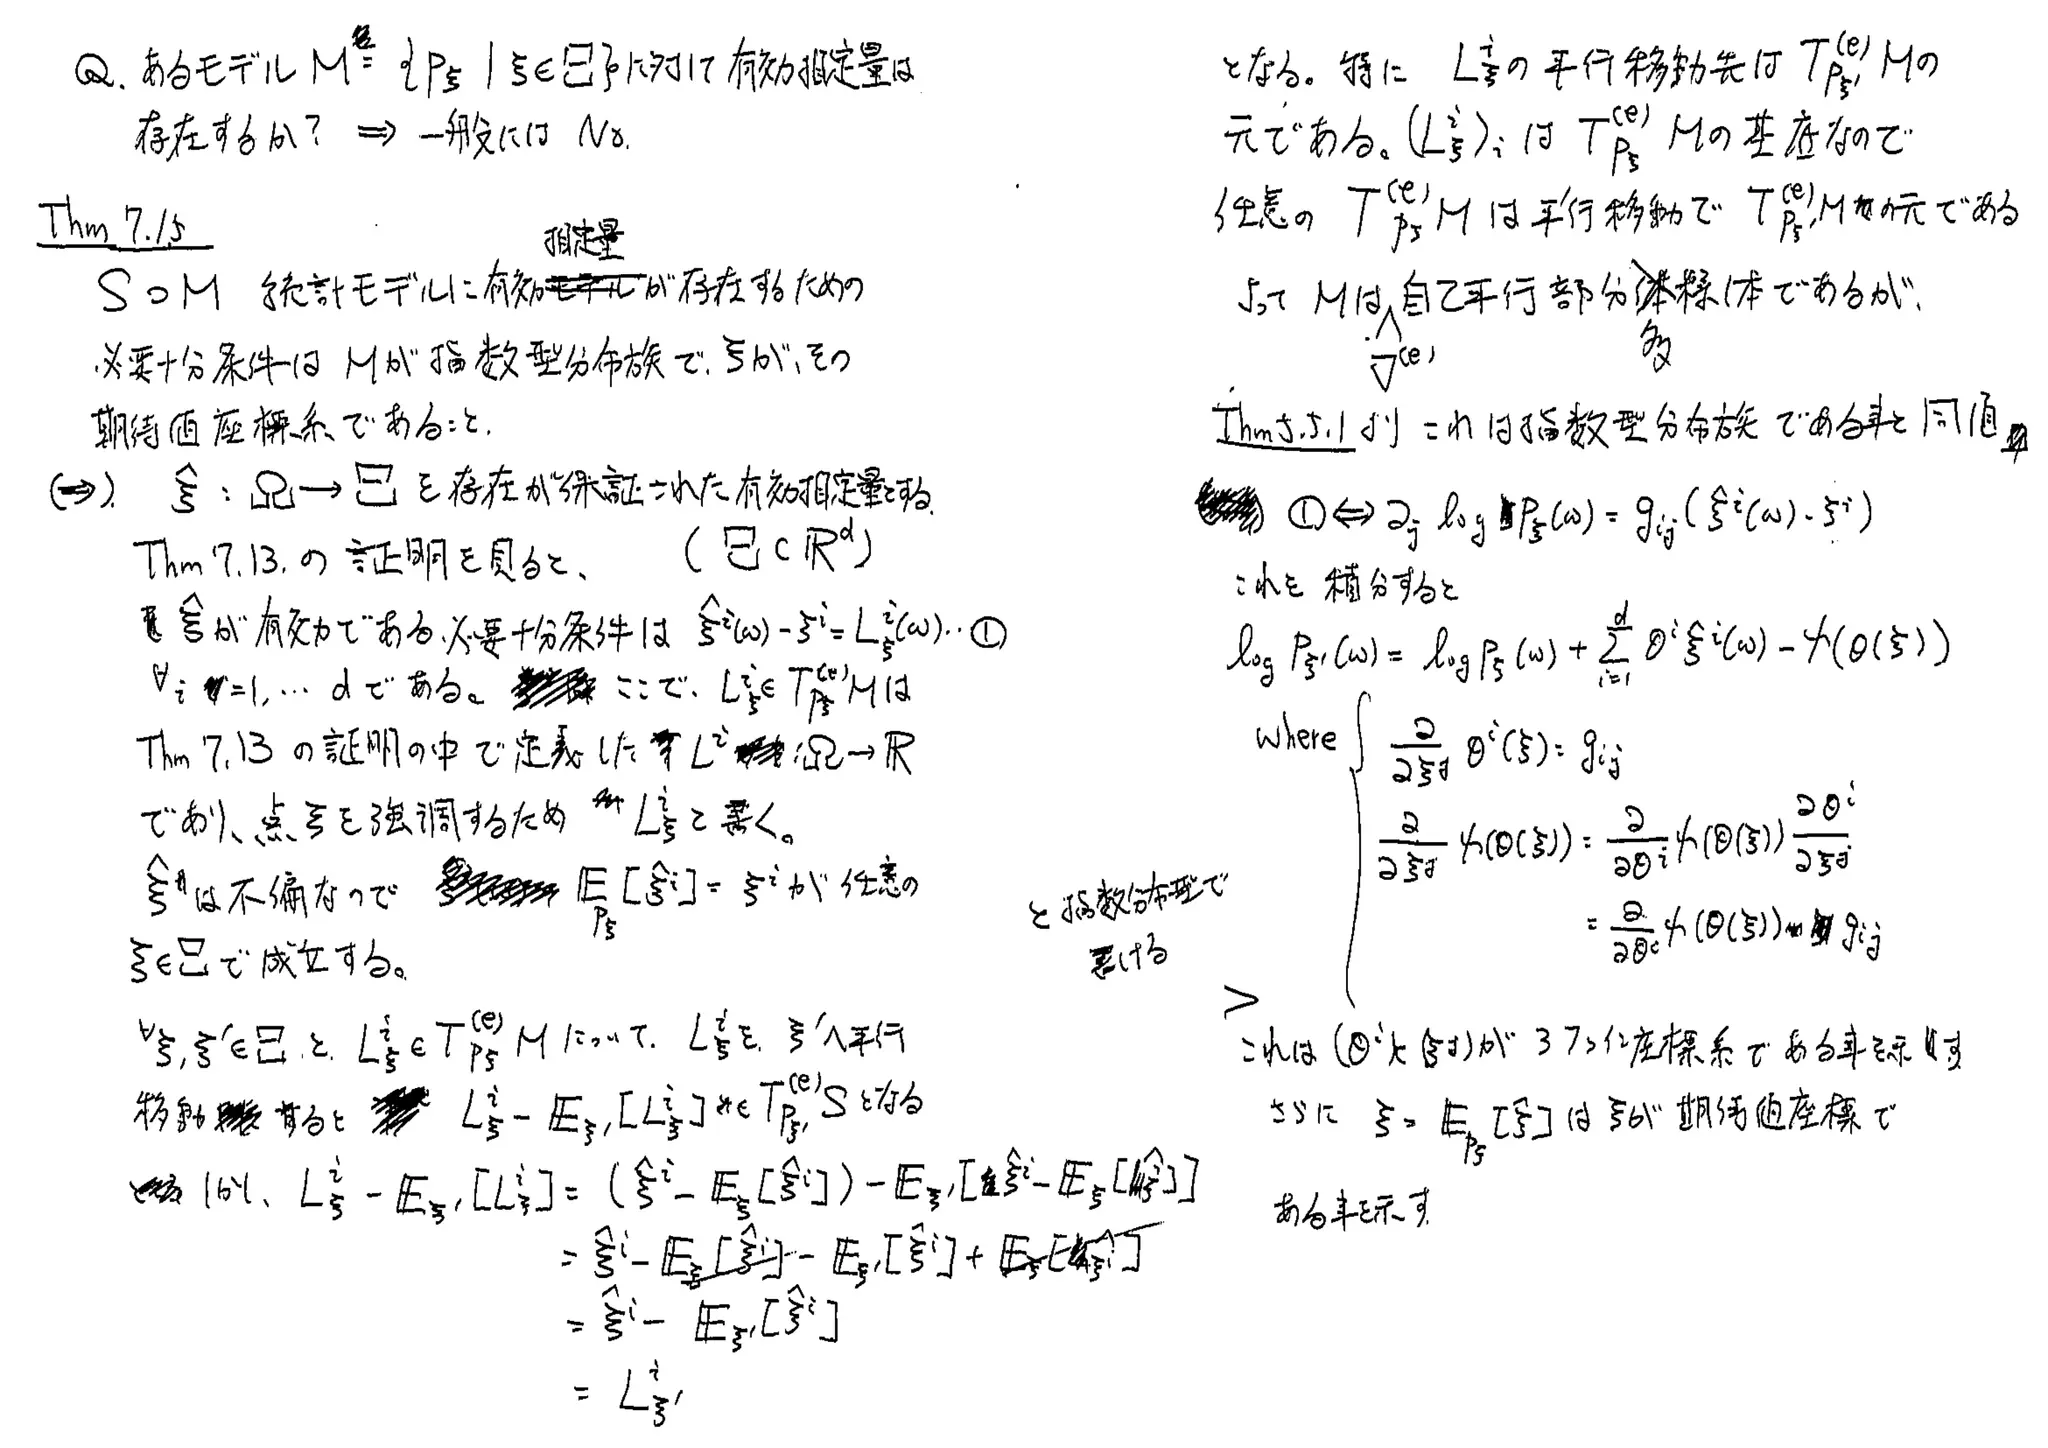 Q. あるモデル M = {p_ξ | ξ∈Ξ} に対して有効推定量は
存在するか? ⟹ 一般には No.
Thm 7.15
推定量
S⊃M 統計モデルに有効が存在するための
必要十分条件は Mが指数型分布族で、ξが、その
期待値座標系であること.
(⇒). ξ̂ : Ω → Ξ を存在が保証された有効推定量とする.
Thm 7.13. の証明を見ると、 (Ξ⊂ℝ^d)
ξ̂が有効である必要十分条件は ξ̂^i(ω) - ξ^i = L^i_ξ(ω) … ①
∀i = 1, … d である。 ここで、L^i_ξ ∈ T^(e)_{p_ξ} M は
Thm 7.13 の証明の中で定義した L^i : Ω → ℝ
であり、点ξを強調するため L^i_ξ と書く。
ξ̂ は不偏なので 𝔼_{p_ξ}[ξ̂^i] = ξ^i が任意の
ξ∈Ξ で成立する。
∀ξ, ξ'∈Ξ と L^i_ξ ∈ T^(e)_{p_ξ} M について、L^i_ξ を ξ' へ平行
移動すると L^i_ξ - 𝔼_ξ'[L^i_ξ] ∈ T^(e)_{p_ξ'} S となる
しかし、 L^i_ξ - 𝔼_ξ'[L^i_ξ] = (ξ̂^i - 𝔼_ξ[ξ̂^i]) - 𝔼_ξ'[ξ̂^i - 𝔼_ξ[ξ̂^i]]
= ξ̂^i - 𝔼_ξ[ξ̂^i] - 𝔼_ξ'[ξ̂^i] + 𝔼_ξ[ξ̂^i]
= ξ̂^i - 𝔼_ξ'[ξ̂^i]
= L^i_ξ'
となる。特に L^i_ξ の平行移動先は T^(e)_{p_ξ'} M の
元である。(L^i_ξ)_i は T^(e)_{p_ξ} M の基底なので
任意の T^(e)_{p_ξ} M は平行移動で T^(e)_{p_ξ'} M の元である
よって Mは 自己平行部分多様体であるが、
∇^(e) 多
Thm 5.5.1 より これは指数型分布族である事と同値
① ⇔ ∂_j log p_ξ(ω) = g_ij (ξ̂^i(ω) - ξ^i)
これを積分すると
log p_ξ'(ω) = log p_ξ(ω) + Σ_{i=1}^d θ^i ξ̂^i(ω) - ψ(θ(ξ))
where { ∂/∂ξ^j θ^i(ξ) = g_ij
∂/∂ξ^j ψ(θ(ξ)) = ∂/∂θ^i ψ(θ(ξ)) ∂θ^i/∂ξ^j
= ∂/∂θ^i ψ(θ(ξ)) g_ij
と指数分布型で
書ける
これは (θ^i と ξ^j) がアファイン座標系である事を示す
さらに ξ = 𝔼_{p_ξ}[ξ̂] は ξが期待値座標で
ある事を示す.